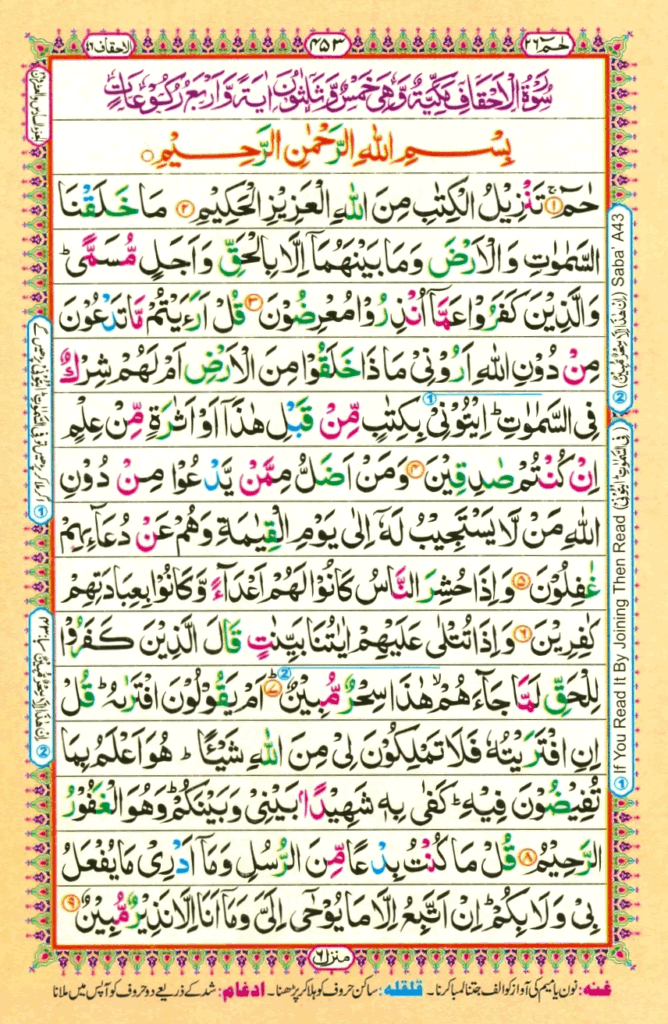 حٰمٓ ٢٦
٤٥٣
الاحقاف ٤٦
سُوْرَةُ الْاَحْقَافِ مَكِّيَّةٌ وَّهِیَ خَمْسٌ وَّثَلٰثُوْنَ اٰیَةً وَّاَرْبَعُ رُكُوْعَاتٍ
بِسْمِ اللّٰهِ الرَّحْمٰنِ الرَّحِیْمِ
حٰمٓ ۚ﴿۱﴾ تَنْزِیْلُ الْكِتٰبِ مِنَ اللّٰهِ الْعَزِیْزِ الْحَكِیْمِ ﴿۲﴾ مَا خَلَقْنَا
السَّمٰوٰتِ وَالْاَرْضَ وَمَا بَیْنَهُمَاۤ اِلَّا بِالْحَقِّ وَاَجَلٍ مُّسَمًّی ؕ
وَالَّذِیْنَ كَفَرُوْا عَمَّاۤ اُنْذِرُوْا مُعْرِضُوْنَ ﴿۳﴾ قُلْ اَرَءَیْتُمْ مَّا تَدْعُوْنَ
مِنْ دُوْنِ اللّٰهِ اَرُوْنِیْ مَاذَا خَلَقُوْا مِنَ الْاَرْضِ اَمْ لَهُمْ شِرْكٌ
فِی السَّمٰوٰتِ ؕ اِیْتُوْنِیْ بِكِتٰبٍ مِّنْ قَبْلِ هٰذَاۤ اَوْ اَثٰرَةٍ مِّنْ عِلْمٍ
اِنْ كُنْتُمْ صٰدِقِیْنَ ﴿۴﴾ وَمَنْ اَضَلُّ مِمَّنْ یَّدْعُوْا مِنْ دُوْنِ
اللّٰهِ مَنْ لَّا یَسْتَجِیْبُ لَهٗۤ اِلٰی یَوْمِ الْقِیٰمَةِ وَهُمْ عَنْ دُعَآىِٕهِمْ
غٰفِلُوْنَ ﴿۵﴾ وَاِذَا حُشِرَ النَّاسُ كَانُوْا لَهُمْ اَعْدَآءً وَّكَانُوْا بِعِبَادَتِهِمْ
كٰفِرِیْنَ ﴿۶﴾ وَاِذَا تُتْلٰی عَلَیْهِمْ اٰیٰتُنَا بَیِّنٰتٍ قَالَ الَّذِیْنَ كَفَرُوْا
لِلْحَقِّ لَمَّا جَآءَهُمْ ۙ هٰذَا سِحْرٌ مُّبِیْنٌ ؕ﴿۷﴾ اَمْ یَقُوْلُوْنَ افْتَرٰىهُ ؕ قُلْ
اِنِ افْتَرَیْتُهٗ فَلَا تَمْلِكُوْنَ لِیْ مِنَ اللّٰهِ شَیْـًٔا ؕ هُوَ اَعْلَمُ بِمَا
تُفِیْضُوْنَ فِیْهِ ؕ كَفٰی بِهٖ شَهِیْدًۢا بَیْنِیْ وَبَیْنَكُمْ ؕ وَهُوَ الْغَفُوْرُ
الرَّحِیْمُ ﴿۸﴾ قُلْ مَا كُنْتُ بِدْعًا مِّنَ الرُّسُلِ وَمَاۤ اَدْرِیْ مَا یُفْعَلُ
بِیْ وَلَا بِكُمْ ؕ اِنْ اَتَّبِعُ اِلَّا مَا یُوْحٰۤی اِلَیَّ وَمَاۤ اَنَا اِلَّا نَذِیْرٌ مُّبِیْنٌ ﴿۹﴾
② (اِنْ هٰذَاۤ اِلَّا سِحْرٌ مُّبِیْنٌ) Saba' A43
① If You Read It By Joining Then Read (فِی السَّمٰوٰتِ ائْتُوْنِیْ)
منزل ٦
غنه: نون یا میم کی آواز کو الف جتنا لمبا کرنا۔ قلقله: ساکن حروف کو ہلا کر پڑھنا۔ ادغام: شد کے ذریعے دو حروف کو آپس میں ملانا